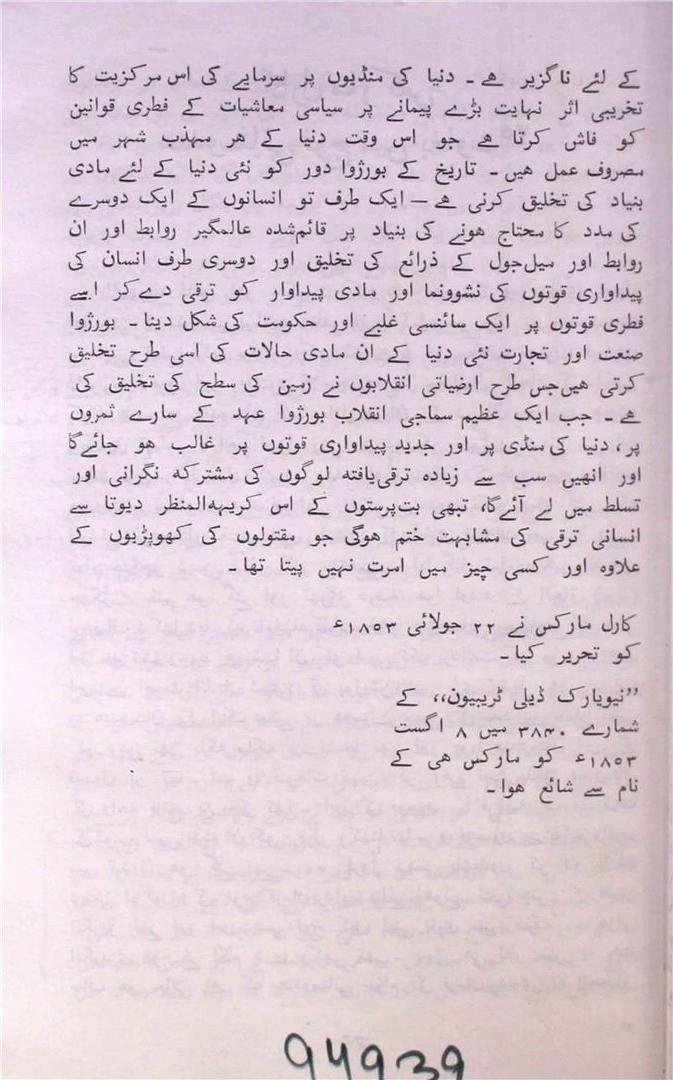 کے لئے ناگزیر ھے ۔ دنیا کی منڈیوں پر سرمایے کی اس مرکزیت کا
تخریبی اثر نہایت بڑے پیمانے پر سیاسی معاشیات کے فطری قوانین
کو فاش کرتا ھے جو اس وقت دنیا کے ھر مہذب شہر میں
مصروف عمل ھیں ۔ تاریخ کے بورژوا دور کو نئی دنیا کے لئے مادی
بنیاد کی تخلیق کرنی ھے — ایک طرف تو انسانوں کے ایک دوسرے
کی مدد کا محتاج ھونے کی بنیاد پر قائم‌شدہ عالمگیر روابط اور ان
روابط اور میل‌جول کے ذرائع کی تخلیق اور دوسری طرف انسان کی
پیداواری قوتوں کی نشوونما اور مادی پیداوار کو ترقی دے‌کر اسے
فطری قوتوں پر ایک سائنسی غلبے اور حکومت کی شکل دینا ۔ بورژوا
صنعت اور تجارت نئی دنیا کے ان مادی حالات کی اسی طرح تخلیق
کرتی ھیں جس طرح ارضیاتی انقلابوں نے زمین کی سطح کی تخلیق کی
ھے ۔ جب ایک عظیم سماجی انقلاب بورژوا عہد کے سارے ثمروں
پر، دنیا کی منڈی پر اور جدید پیداواری قوتوں پر غالب ھو جائے‌گا
اور انھیں سب سے زیادہ ترقی‌یافتہ لوگوں کی مشترکہ نگرانی اور
تسلط میں لے آئے‌گا، تبھی بت‌پرستوں کے اس کریہہ‌المنظر دیوتا سے
انسانی ترقی کی مشابہت ختم ھوگی جو مقتولوں کی کھوپڑیوں کے
علاوہ اور کسی چیز میں امرت نہیں پیتا تھا ۔
کارل مارکس نے ۲۲ جولائی ۱۸۵۳ء
کو تحریر کیا ۔
”نیویارک ڈیلی ٹریبیون،، کے
شمارے ۳۸۴۰ میں ۸ اگست
۱۸۵۳ء کو مارکس ھی کے
نام سے شائع ھوا ۔
94939